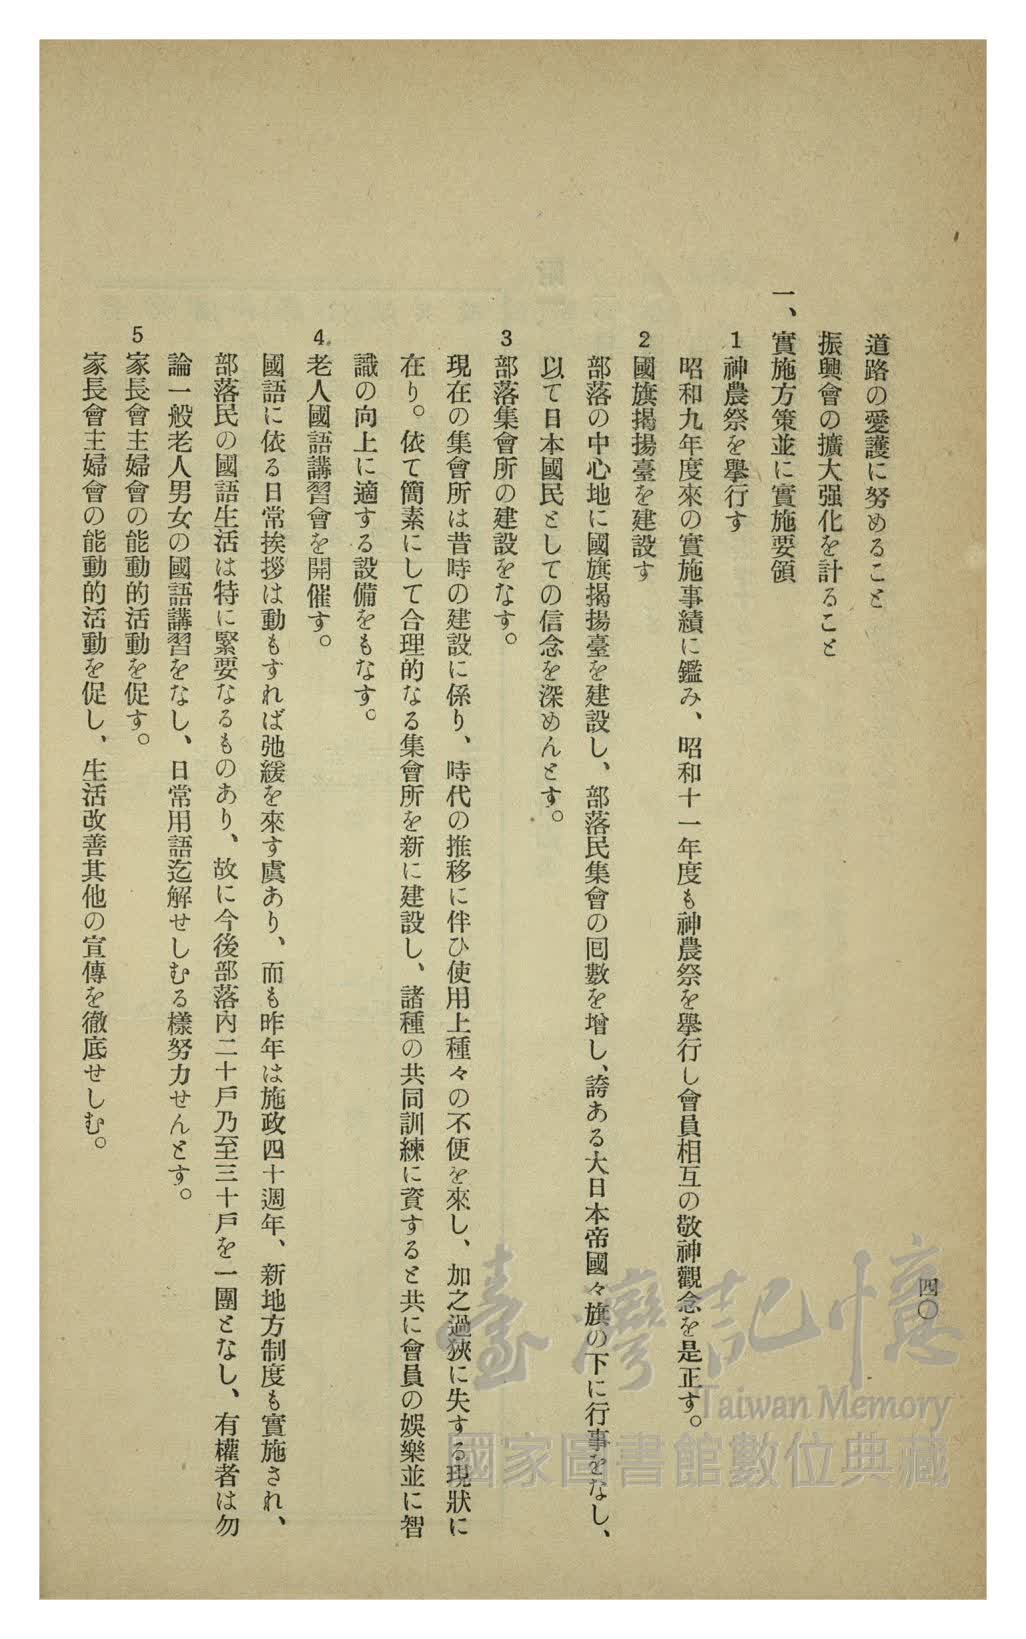 道路の愛護に努めること
振興會の擴大强化を計ること
一、實施方策並に實施要領
1 神農祭を擧行す
昭和九年度來の實施事績に鑑み、昭和十一年度も神農祭を擧行し會員相互の敬神觀念を是正す。
2 國旗揭揚臺を建設す
部落の中心地に國旗揭揚臺を建設し、部落民集會の回數を增し、誇ある大日本帝國々旗の下に行事をなし、
以て日本國民としての信念を深めんとす。
3 部落集會所の建設をなす。
現在の集會所は昔時の建設に係り、時代の推移に伴ひ使用上種々の不便を來し、加之過狹に失する現狀に
在り。依て簡素にして合理的なる集會所を新に建設し、諸種の共同訓練に資すると共に會員の娛樂並に智
識の向上に適する設備をもなす。
4 老人國語講習會を開催す。
國語に依る日常挨拶は動もすれば弛緩を來す虞あり、而も昨年は施政四十週年、新地方制度も實施され、
部落民の國語生活は特に緊要なるものあり、故に今後部落內二十戶乃至三十戶を一團となし、有權者は勿
論一般老人男女の國語講習をなし、日常用語迄解せしむる樣努力せんとす。
5 家長會主婦會の能動的活動を促す。
家長會主婦會の能動的活動を促し、生活改善其他の宣傳を徹底せしむ。
四〇
臺灣記憶
Taiwan Memory
國家圖書館數位典藏